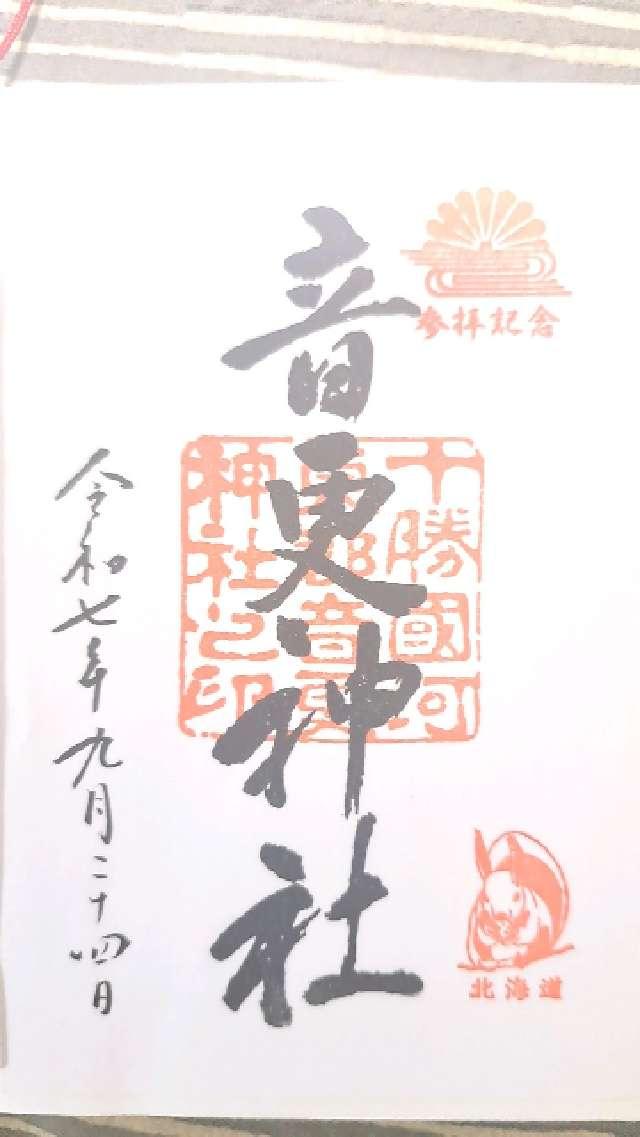 参拝記念
音更神社
十勝國河
東郡音更
神社之印
北海道
令和七年九月二十四日